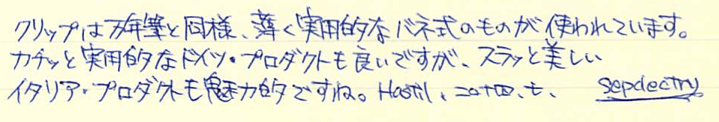 クリップは万年筆と同様、薄く実用的なバネ式のものが使われています。
カチッと実用的なドイツ・プロダクトも良いですが、スラッと美しい
イタリア・プロダクトも魅力的ですね。Hastil、